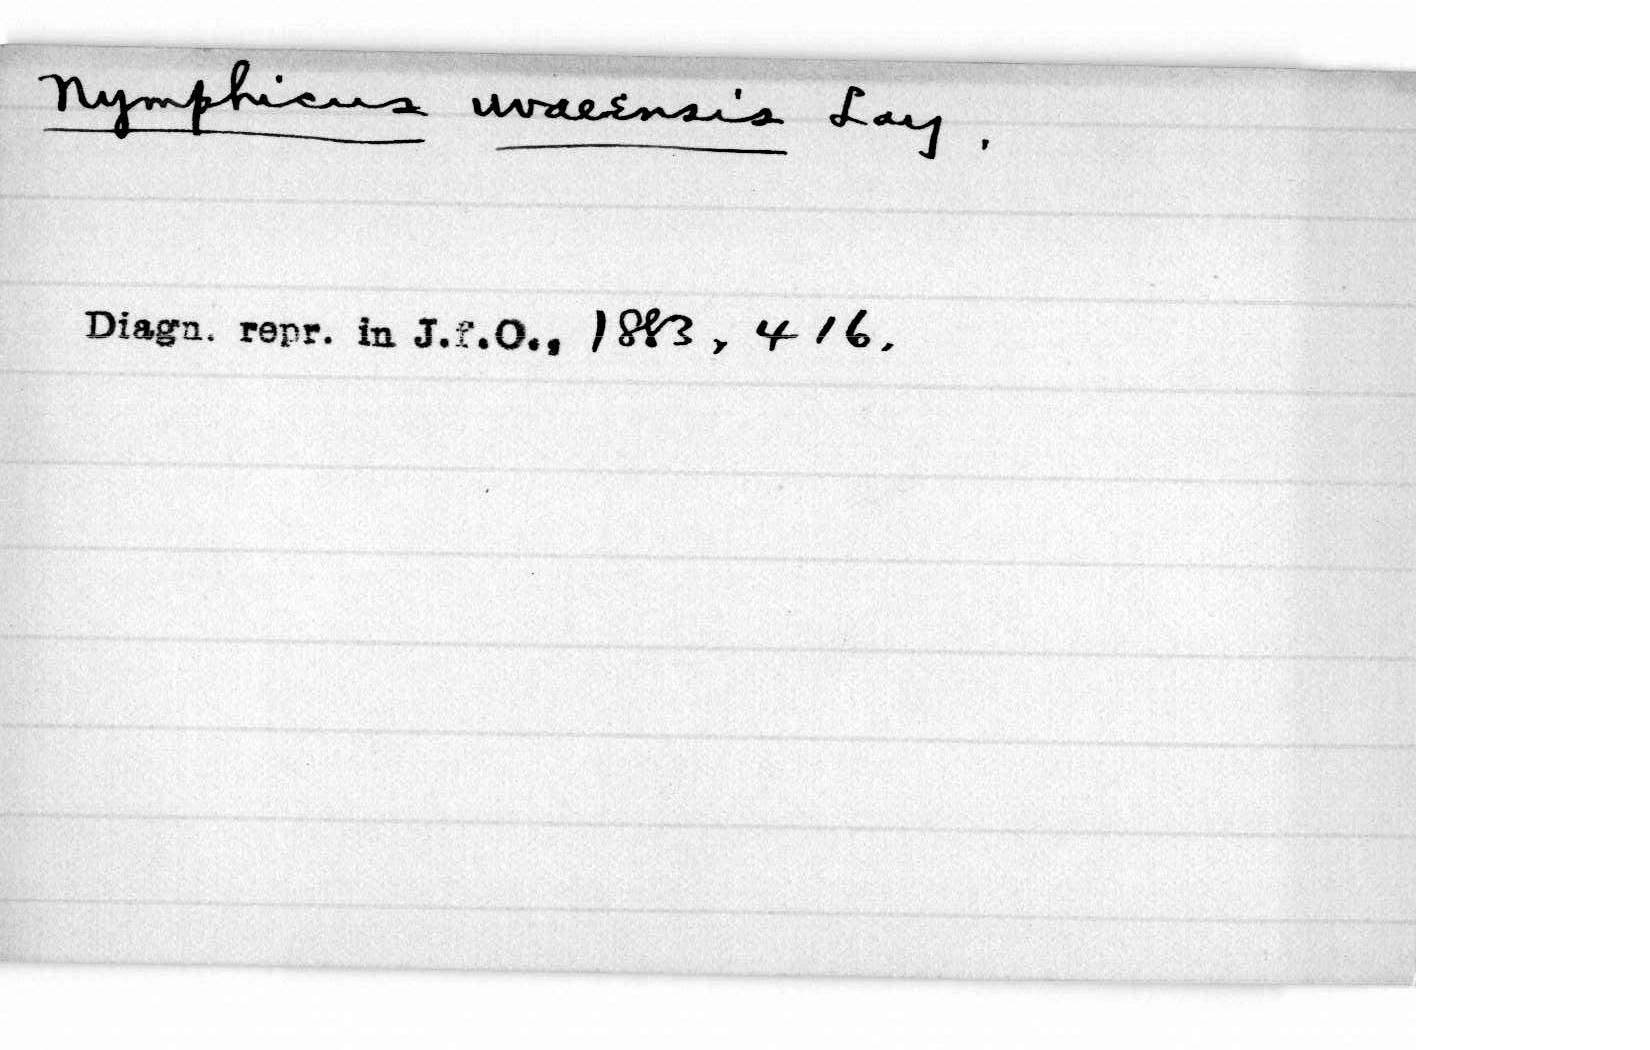 Nymphicus uvaeensis Lay.
Diagn. repr. in J.f.O., 1883, 416.